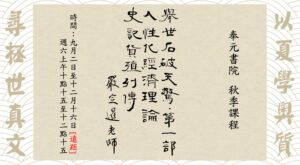 以夏學奧質
奉元書院 秋季課程
舉世石破天驚：第一部
人性化經濟理論
史記貨殖列傳
嚴定暹老師
時間：九月二日至十二月十六日［遠距］
週六上午十點十五至十二點十五
尋拯世真文